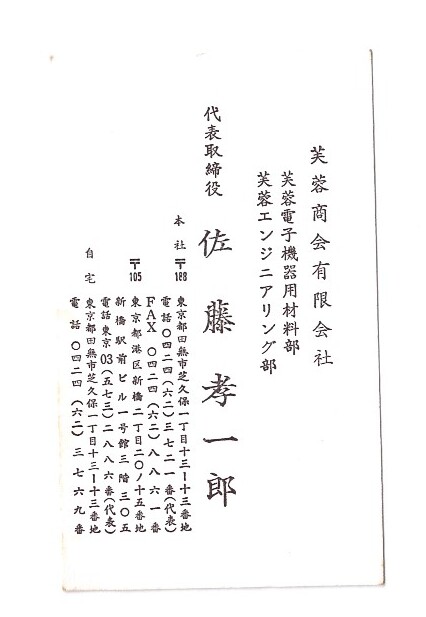 芙蓉商会有限会社
芙蓉電子機器用材料部
芙蓉エンジニアリング部
代表取締役 佐藤孝一郎
本社 〒188 東京都田無市芝久保一丁目十三ー十三番地
電話 〇四二四(六二)三七二一番(代表)
FAX 〇四二四(六二)八八六一番
〒105 東京都港区新橋二丁目二〇ノ十五番地
新橋駅前ビル一号館三階三〇五
電話東京03(五七三)二八八六番(代表)
自宅 東京都田無市芝久保一丁目十三ー十三番地
電話 〇四二四(六二)三七六九番